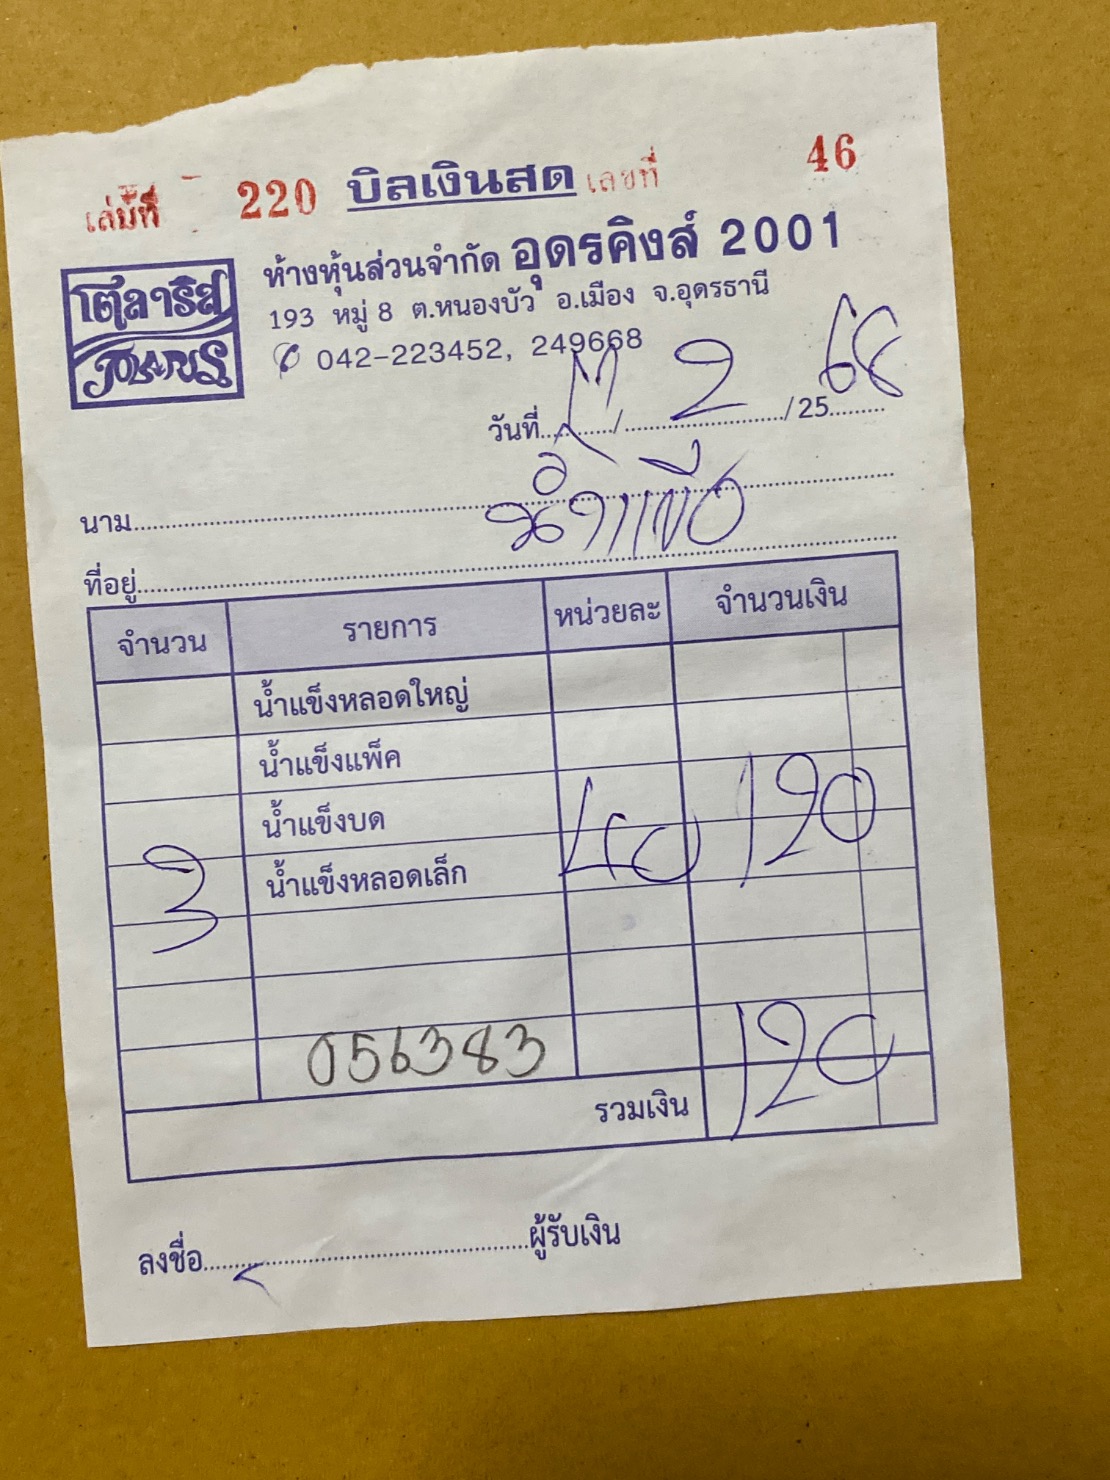 เล่มที่ 220 บิลเงินสด เลขที่ 46
ห้างหุ้นส่วนจำกัด อุดรคิงส์ 2001
193 หมู่ 8 ต.หนองบัว อ.เมือง จ.อุดรธานี
042-223452, 249668
โตลาริส
วันที่........../ 2 /25 68
นาม
ที่อยู่
จำนวน รายการ หน่วยละ จำนวนเงิน
น้ำแข็งหลอดใหญ่
น้ำแข็งแพ็ค
น้ำแข็งบด
3 น้ำแข็งหลอดเล็ก 40 120
056383
รวมเงิน 120
ลงชื่อ..........ผู้รับเงิน